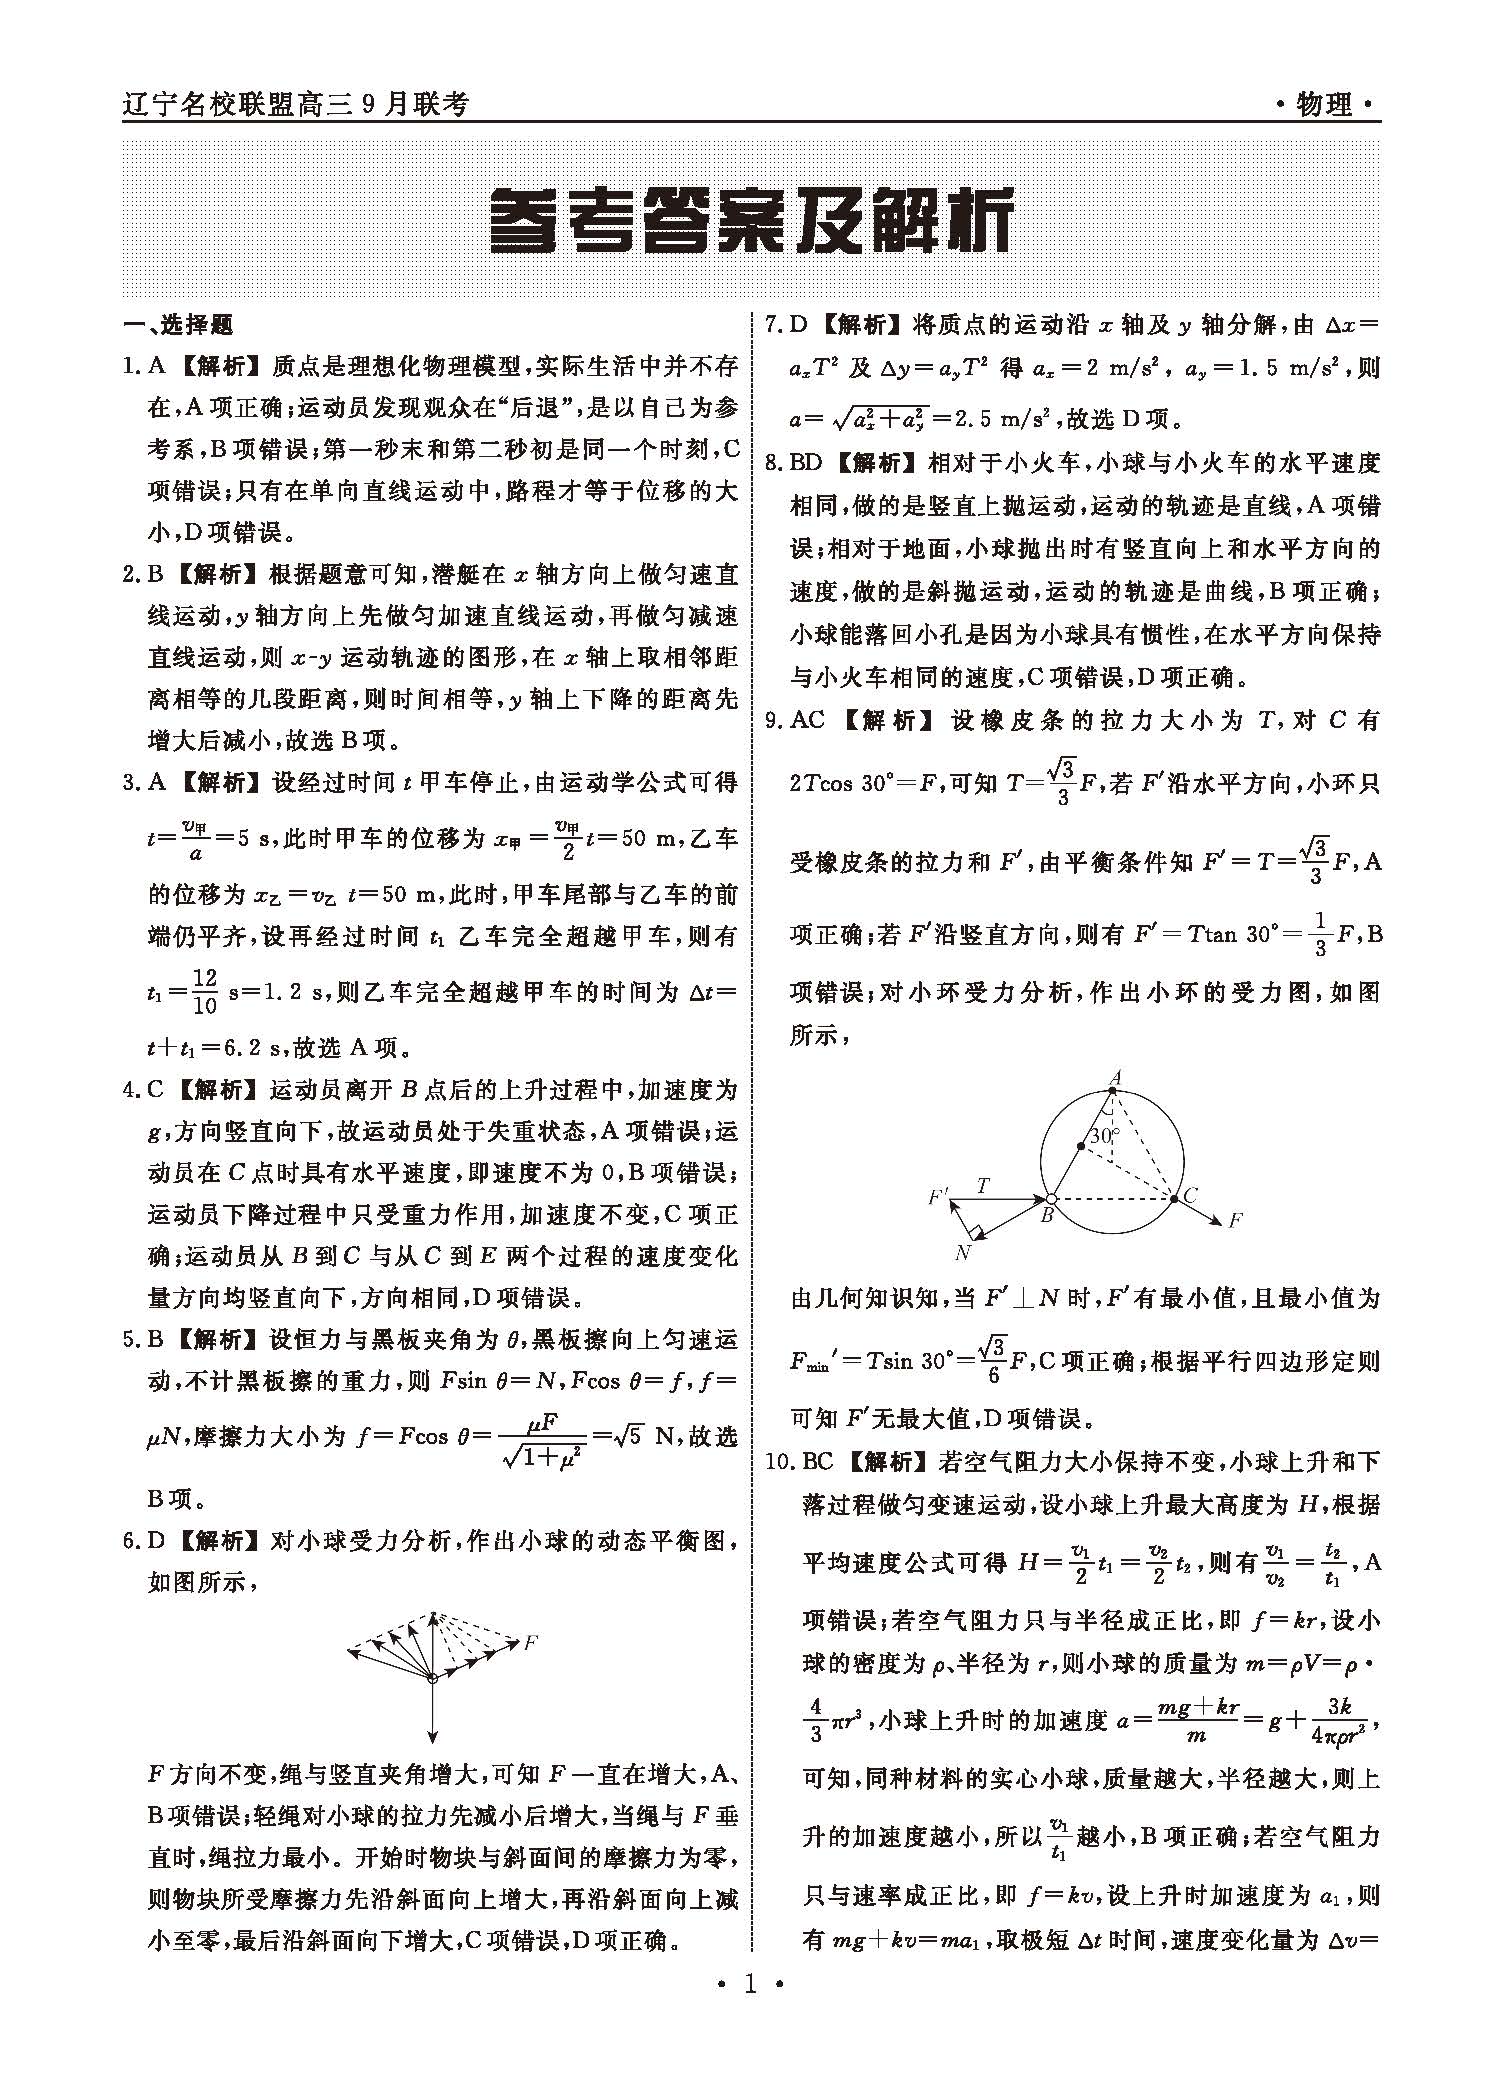 辽宁名校联盟高三9月联考
·物理·
参考答案及解析
一、选择题
1. A 【解析】质点是理想化物理模型,实际生活中并不存
在,A项正确;运动员发现观众在“后退”,是以自己为参
考系,B项错误;第一秒末和第二秒初是同一个时刻,C
项错误;只有在单向直线运动中,路程才等于位移的大
小,D项错误。
2. B 【解析】根据题意可知,潜艇在 x 轴方向上做匀速直
线运动,y轴方向上先做匀加速直线运动,再做匀减速
直线运动,则 x-y 运动轨迹的图形,在 x 轴上取相邻距
离相等的几段距离,则时间相等,y 轴上下降的距离先
增大后减小,故选 B 项。
3. A 【解析】设经过时间 t 甲车停止,由运动学公式可得
t=v甲/a=5 s,此时甲车的位移为 x甲=v甲/2 t=50 m,乙车
的位移为 x乙=v乙 t=50 m,此时,甲车尾部与乙车的前
端仍平齐,设再经过时间 t₁ 乙车完全超越甲车,则有
t₁=12/10 s=1.2 s,则乙车完全超越甲车的时间为 Δt=
t+t₁=6.2 s,故选 A 项。
4. C 【解析】运动员离开 B 点后的上升过程中,加速度为
g,方向竖直向下,故运动员处于失重状态,A 项错误;运
动员在 C 点时具有水平速度,即速度不为 0,B 项错误;
运动员下降过程中只受重力作用,加速度不变,C 项正
确;运动员从 B 到 C 与从 C 到 E 两个过程的速度变化
量方向均竖直向下,方向相同,D 项错误。
5. B 【解析】设恒力与黑板夹角为 θ,黑板擦向上匀速运
动,不计黑板擦的重力,则 Fsin θ=N,Fcos θ=f,f=
μN,摩擦力大小为 f=Fcos θ=μF/√(1+μ²)=√5 N,故选
B 项。
6. D 【解析】对小球受力分析,作出小球的动态平衡图,
如图所示,
F
F 方向不变,绳与竖直夹角增大,可知 F 一直在增大,A、
B 项错误;轻绳对小球的拉力先减小后增大,当绳与 F 垂
直时,绳拉力最小。开始时物块与斜面间的摩擦力为零,
则物块所受摩擦力先沿斜面向上增大,再沿斜面向上减
小至零,最后沿斜面向下增大,C 项错误,D 项正确。
7. D 【解析】将质点的运动沿 x 轴及 y 轴分解,由 Δx=
aₓT² 及 Δy=a_yT² 得 aₓ=2 m/s², a_y=1.5 m/s²,则
a=√(aₓ²+a_y²)=2.5 m/s²,故选 D 项。
8. BD 【解析】相对于小火车,小球与小火车的水平速度
相同,做的是竖直上抛运动,运动的轨迹是直线,A 项错
误;相对于地面,小球抛出时有竖直向上和水平方向的
速度,做的是斜抛运动,运动的轨迹是曲线,B 项正确;
小球能落回小孔是因为小球具有惯性,在水平方向保持
与小火车相同的速度,C 项错误,D 项正确。
9. AC 【解析】设橡皮条的拉力大小为 T,对 C 有
2Tcos 30°=F,可知 T=√3/3 F,若 F′沿水平方向,小环只
受橡皮条的拉力和 F′,由平衡条件知 F′=T=√3/3 F,A
项正确;若 F′沿竖直方向,则有 F′=Ttan 30°=1/3 F,B
项错误;对小环受力分析,作出小环的受力图,如图
所示,
A
30°
F′ T
B
C
F
N
由几何知识知,当 F′⊥N 时,F′有最小值,且最小值为
Fmin′=Tsin 30°=√3/6 F,C 项正确;根据平行四边形定则
可知 F′无最大值,D 项错误。
10. BC 【解析】若空气阻力大小保持不变,小球上升和下
落过程做匀变速运动,设小球上升最大高度为 H,根据
平均速度公式可得 H=v₁/2 t₁=v₂/2 t₂,则有 v₁/v₂=t₂/t₁,A
项错误;若空气阻力只与半径成正比,即 f=kr,设小
球的密度为 ρ、半径为 r,则小球的质量为 m=ρV=ρ·
4/3 πr³,小球上升时的加速度 a=(mg+kr)/m=g+3k/4πρr²,
可知,同种材料的实心小球,质量越大,半径越大,则上
升的加速度越小,所以 v₁/t₁ 越小,B 项正确;若空气阻力
只与速率成正比,即 f=kv,设上升时加速度为 a₁,则
有 mg+kv=ma₁,取极短 Δt 时间,速度变化量为 Δv=
· 1 ·